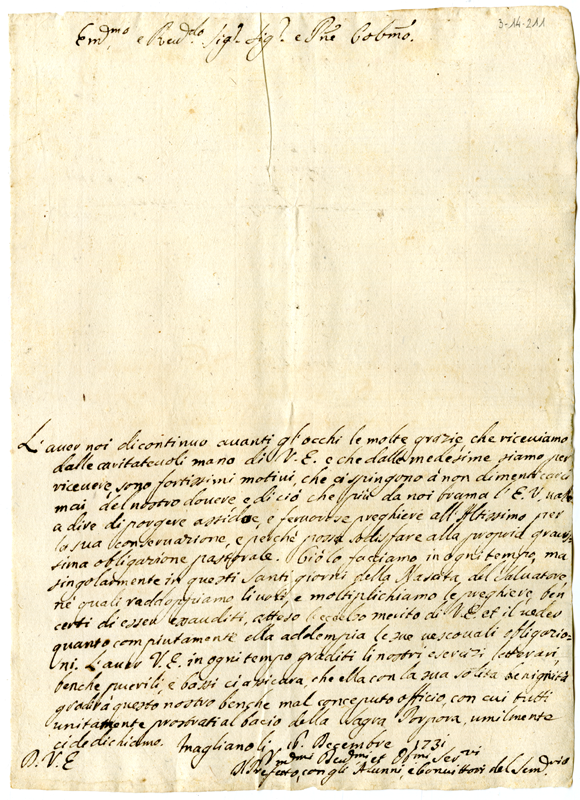 3-14-211
Em.mo e Rev.do Sig.r Sig.r e Pne Colmo.
L'aver noi dicontinuo avanti gl'occhi le molte grazie, che riceviamo
dalle caritatevoli mano di V.E. e che dalle medesime siamo per
ricevere, sono fortissimi motivi, che ci spingono à non dimenticarci
mai del nostro dovere, e di ciò che più da noi brama l'E.V, vale
a dire di porgere assidue, e fervorose preghiere all'Altissimo per
la sua conservazione, e perché possa sodisfare alla propria gravis-
sima obligazione pastorale. Ciò lo facciamo in ogni tempo, ma
singolarmente in questi Santi giorni della Nascita del Salvatore,
né quali raddoppiamo li voti, e moltiplichiamo le preghiere, ben
certi di esser esauditi, atteso l'eccelso merito di V.E. et il veder
quanto compiutamente ella addempia le sue vescovali obligazio-
ni. L'aver V.E. in ogni tempo graditi li nostri esercizi letterari,
benche puerili, e bassi ci assicura, che ella con la sua solita benignità
gradirà questo nostro benche mal conceputo officio, con cui tutti
unitamente prostrati al bacio della Sagra Porpora, umilmente
ci dedichiamo. Magliano li 16. Decembre 1731
D.V.E
Um.mi Dev.mi et Obl.mi Ser.vi
Il Prefetto, con gli Alunni, e Convittori del Sem.rio